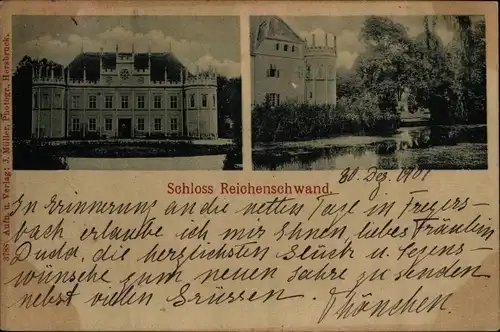 Schloss Reichenschwand.
30. Dez. 1901
In Erinnerung an die netten Tage in Freyers-
bach erlaube ich mir Ihnen, liebes Fräulein
Duda, die herzlichsten Glück u. Segens-
wünsche zum neuen Jahre zu senden
nebst vielen Grüssen.
Aufn. u. Verlag: J. Müller, Photogr., Hersbruck.